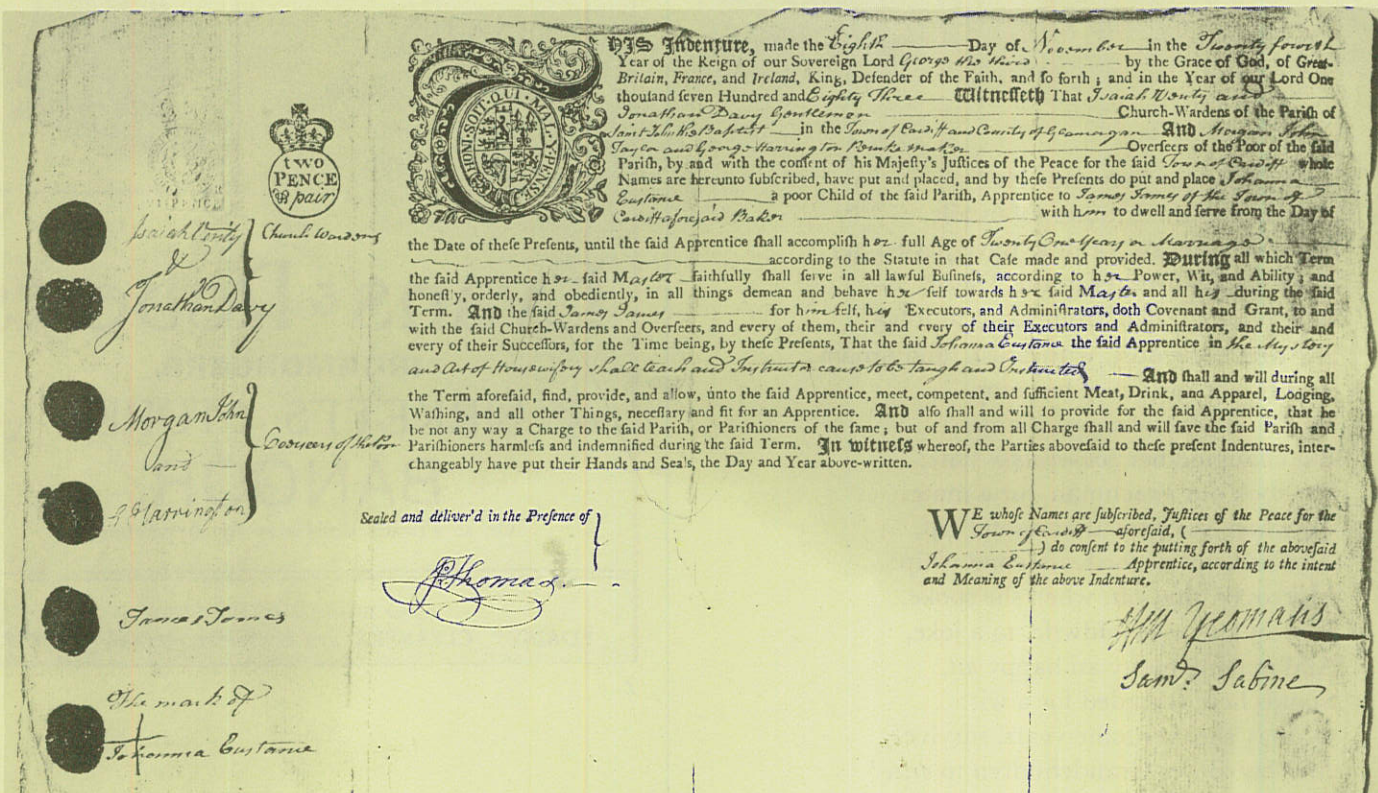 THIS Indenture, made the Eighth Day of November in the Twenty fourth
Year of the Reign of our Sovereign Lord George the third by the Grace of God, of Great-
Britain, France, and Ireland, King, Defender of the Faith, and ſo forth ; and in the Year of our Lord One
thouſand ſeven Hundred and Eighty Three Witneſſeth That Isaiah Venty and
Jonathan Davy Gentlemen Church-Wardens of the Parish of
Saint John the Baptist in the Town of Cardiff and County of Glamorgan And Morgan John
Taylor and George Harrington Peruke maker Overſeers of the Poor of the ſaid
Pariſh, by and with the conſent of his Majeſty's Juſtices of the Peace for the ſaid Town of Cardiff whoſe
Names are hereunto ſubſcribed, have put and placed, and by theſe Preſents do put and place Johanna
Eustance a poor Child of the ſaid Pariſh, Apprentice to James James of the Town of
Cardiff aforesaid Baker with him to dwell and ſerve from the Day of
the Date of theſe Preſents, until the ſaid Apprentice ſhall accompliſh her full Age of Twenty One Years or Marriage
according to the Statute in that Caſe made and provided. During all which Term
the ſaid Apprentice her ſaid Master faithfully ſhall ſerve in all lawful Buſineſs, according to her Power, Wit, and Ability ; and
honeſtly, orderly, and obediently, in all things demean and behave her ſelf towards her ſaid Master and all his during the ſaid
Term. And the ſaid James James for him ſelf, his Executors, and Adminiſtrators, doth Covenant and Grant, to and
with the ſaid Church-Wardens and Overſeers, and every of them, their and every of their Executors and Adminiſtrators, and their and
every of their Succeſſors, for the Time being, by theſe Preſents, That the ſaid Johanna Eustance the ſaid Apprentice in the Mystory
and Art of Housewifery shall teach and Instruct or cause to be taugh and Instructed And ſhall and will during all
the Term aforeſaid, find, provide, and allow, unto the ſaid Apprentice, meet, competent, and ſufficient Meat, Drink, and Apparel, Lodging,
Waſhing, and all other Things, neceſſary and fit for an Apprentice. And alſo ſhall and will ſo provide for the ſaid Apprentice, that he
be not any way a Charge to the ſaid Pariſh, or Pariſhioners of the ſame ; but of and from all Charge ſhall and will ſave the ſaid Pariſh and
Pariſhioners harmleſs and indemnified during the ſaid Term. In witneſs whereof, the Parties aboveſaid to theſe preſent Indentures, inter-
changeably have put their Hands and Seals, the Day and Year above-written.
HONI·SOIT·QUI·MAL·Y·PENSE
TWO
PENCE
pair
Isaiah Venty
&
Jonathan Davy
Church Wardens
Morgan John
and
G Harrington
Overseers of the Poor
James James
The mark of
Johanna Eustance
Sealed and deliver'd in the Preſence of
Thomas
WE whoſe Names are ſubſcribed, Juſtices of the Peace for the
Town of Cardiff aforeſaid, (
) do conſent to the putting forth of the aboveſaid
Johanna Eustance Apprentice, according to the intent
and Meaning of the above Indenture.
Yeomans
Saml. Sabine